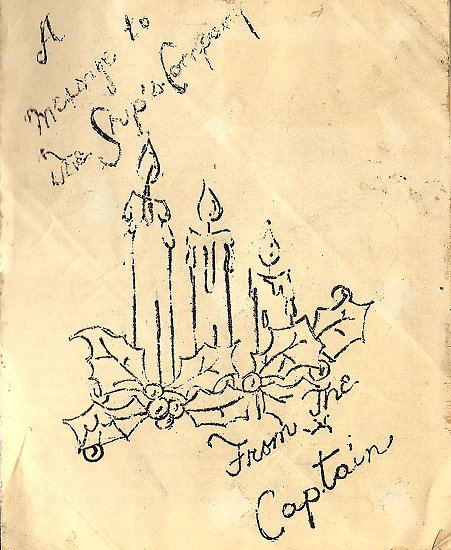 A
Message to
The Ship's Company
From The
Captain